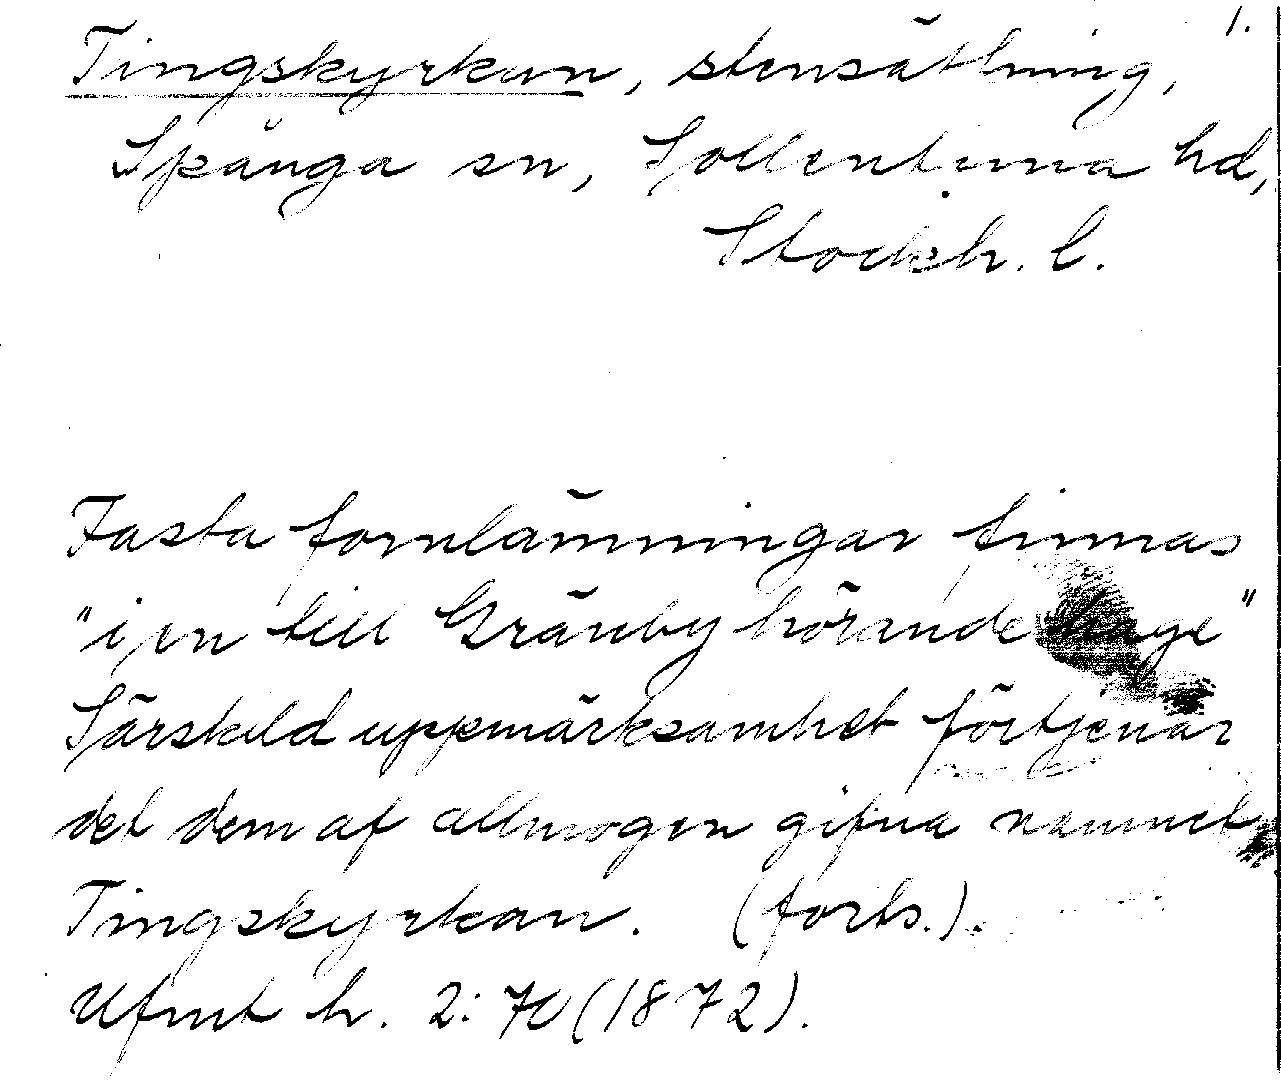 1.
Tingskyrkan, stensättning,
Spånga sn, Sollentuna hd,
Stockh. l.
Fasta fornlämningar finnas
"i en till Gränby hörande hage"
Särskild uppmärksamhet förtjenar
det dem af allmogen gifna namnet
Tingskyrkan. (forts.).
Ufmt h. 2:70 (1872).